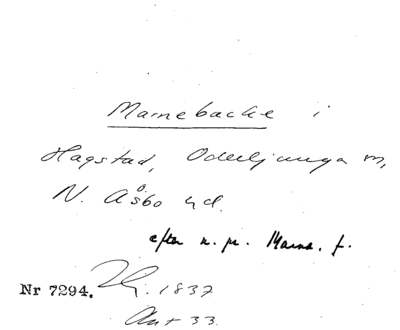 Mamebacke i
Hagstad, Oderljunga sn,
N. Åsbo hd.
efter n. pr. Mama. f.
Nr 7294. 1837
Ant 33.